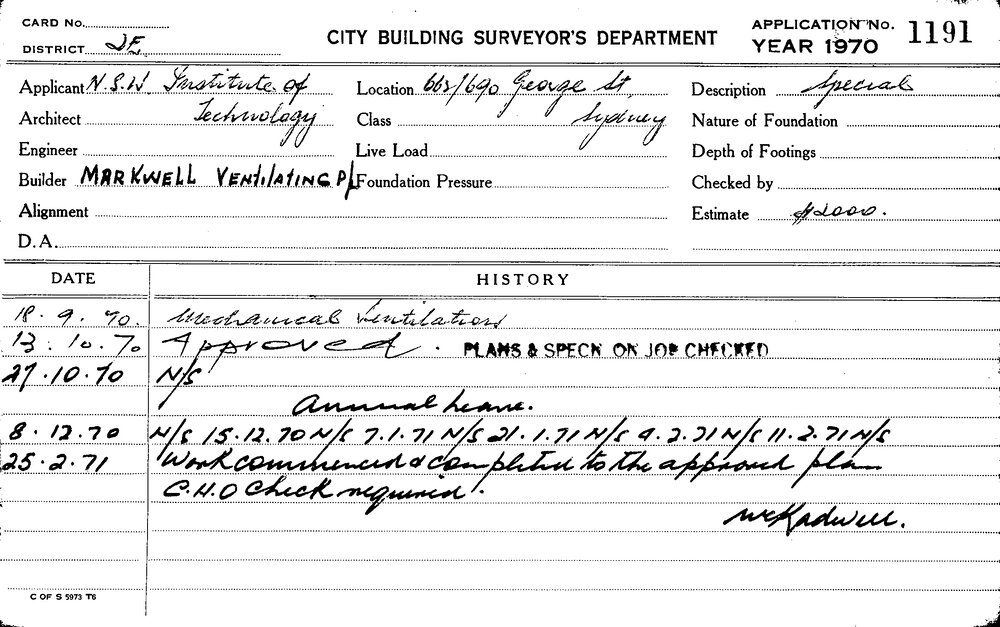 CARD No.
DISTRICT 2E
CITY BUILDING SURVEYOR'S DEPARTMENT
APPLICATION No. 1191
YEAR 1970
Applicant N.S.W Institute of
Technology
Location 662/690 George St,
Sydney
Description Special
Architect
Class
Nature of Foundation
Engineer
Live Load
Depth of Footings
Builder MARKWELL VENTILATING P/L
Foundation Pressure
Checked by
Alignment
Estimate $2000.
D.A.
DATE HISTORY
18.9.70. Mechanical Ventilation
13.10.70 Approved. PLANS & SPECN ON JOB CHECKED
27.10.70 N/S
Annual Leave.
8.12.70 N/S 15.12.70 N/S 7.1.71 N/S 21.1.71 N/S 9.2.71 N/S 11.2.71 N/S
25.2.71 Work commenced & completed to the approved plan
C.H.O Check required.
C OF S 5973 T6